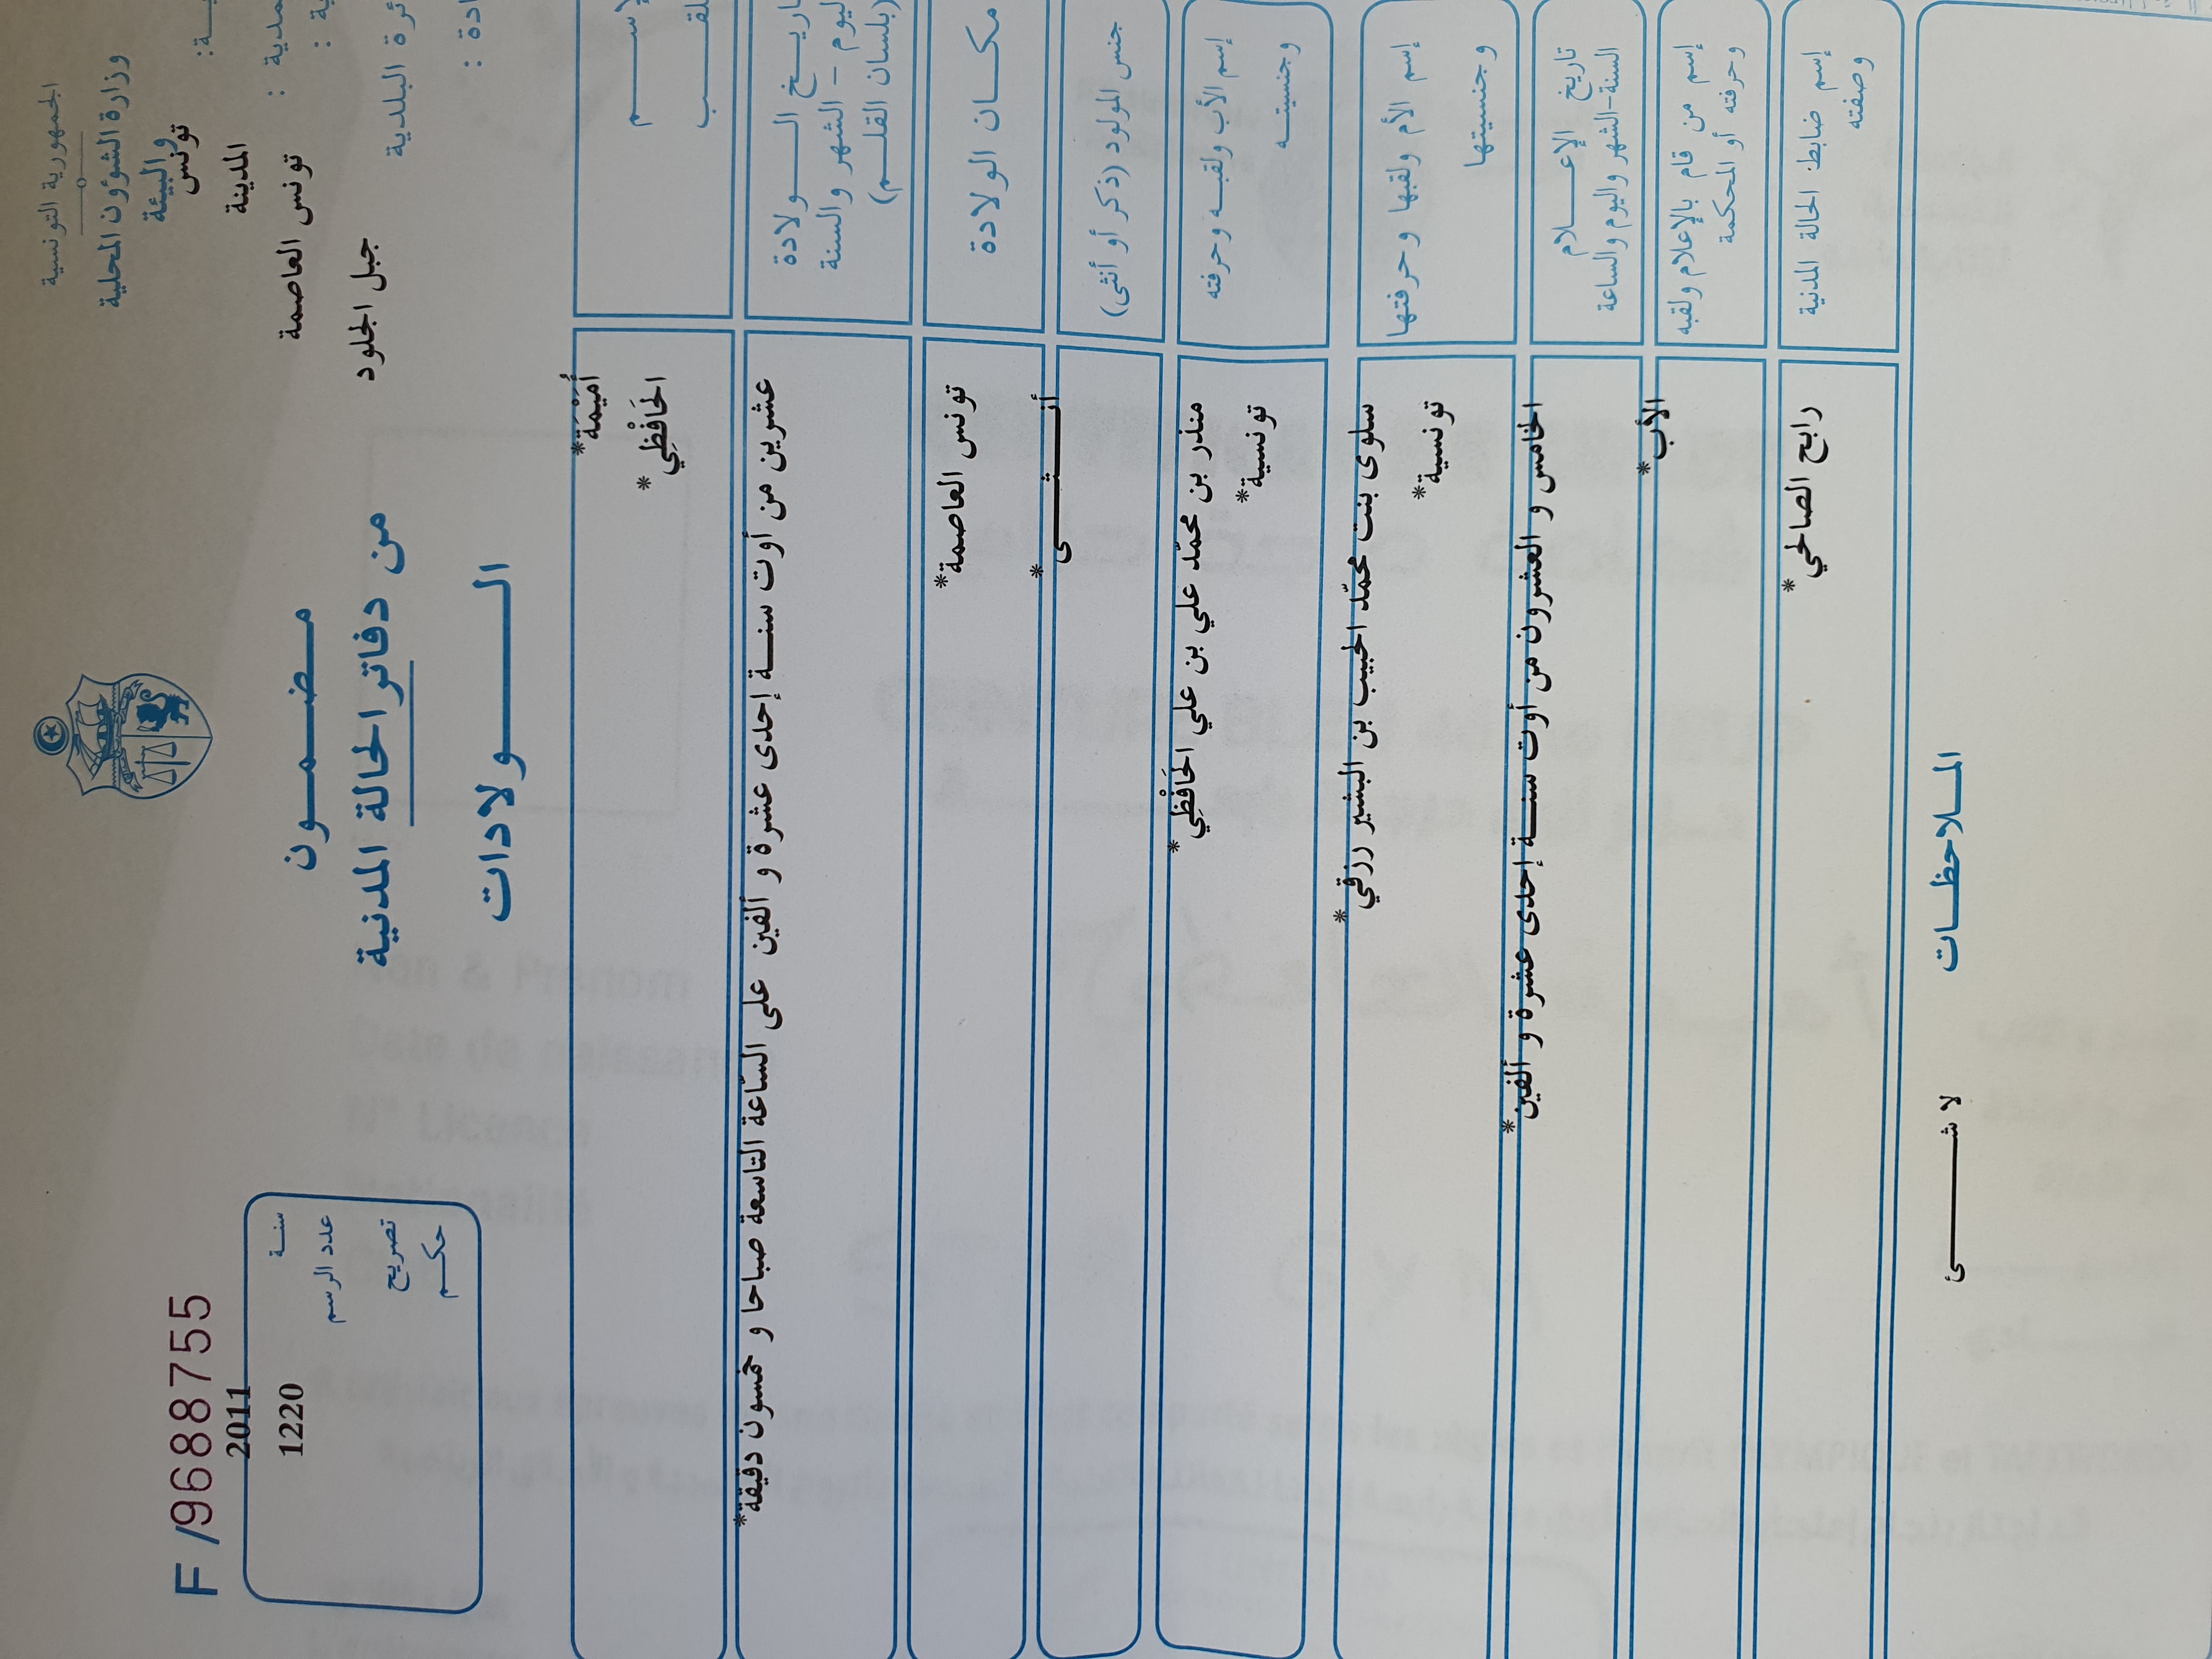 الجمهورية التونسية
وزارة الشؤون المحلية
والبيئة
تونس
المدينة
تونس العاصمة
جبل الجلود
ئرة البلدية
F /9688755
2011
سنة
1220
عدد الرسم
تصريح
حكم
مضمون
من دفاتر الحالة المدنية
الولادات
أُمَيْمَة*
الحَافْظِي *
اريخ الولادة
ليوم - الشهر والسنة
(بلسان القلم)
عشرين من أوت سنة إحدى عشرة و ألفين على السّاعة التاسعة صباحا و خمسون دقيقة*
مكان الولادة
تونس العاصمة*
جنس المولود (ذكر أو أنثى)
أنثى *
إسم الأب ولقبه وحرفته
وجنسيته
منذر بن محمّد علي بن علي الحَافْظِي *
تونسية*
إسم الأم ولقبها وحرفتها
وجنسيتها
سلوى بنت محمّد الحبيب بن البشير رزقي *
تونسية*
تاريخ الإعلام
السنة-الشهر واليوم والساعة
الخامس و العشرون من أوت سنة إحدى عشرة و ألفين*
إسم من قام بالإعلام ولقبه
وحرفته أو المحكمة
الأب*
إسم ضابط الحالة المدنية
وصفته
رابح الصالحي *
الملاحظات
لا شئ